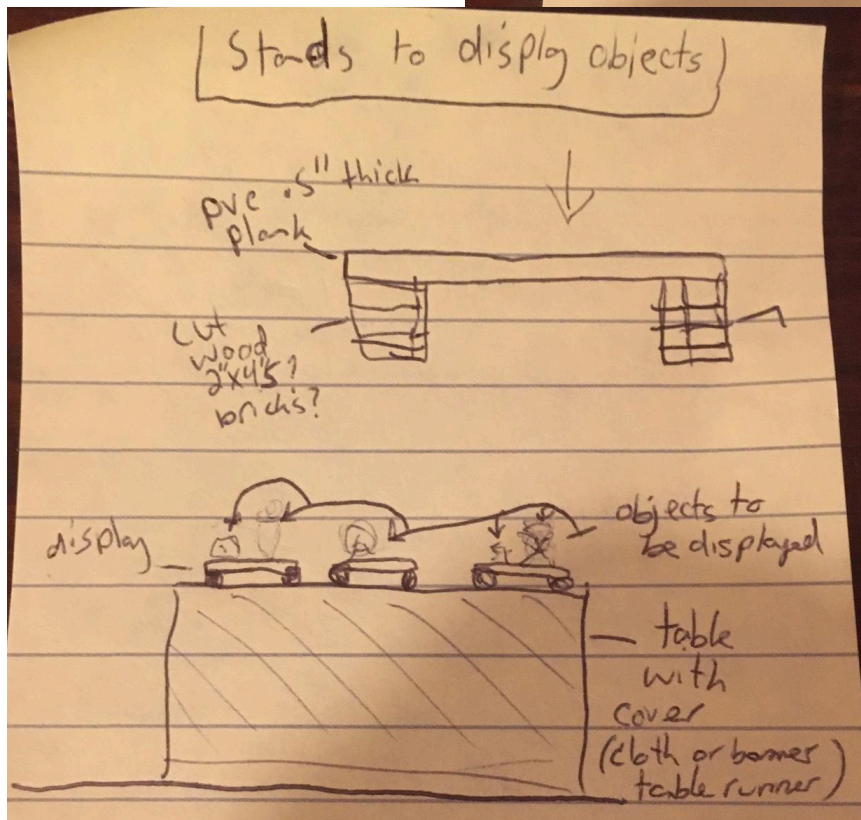 Stands to display objects
pvc .5" thick
plank
cut
wood
2"x4's?
bricks?
display
objects to
be displayed
table
with
cover
(cloth or banner
table runner)